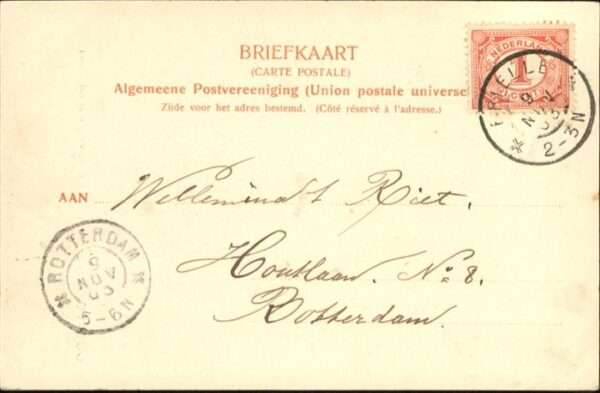 BRIEFKAART
(CARTE POSTALE)
Algemeene Postvereeniging (Union postale universe
Zijde voor het adres bestemd. (Côté réservé à l'adresse.)
NEDERLAND
1
CENT
9
NOV
2-3N
AAN Willemina Riet.
Houtlaan. No 8.
Rotterdam.
ROTTERDAM
9
NOV
03
5-6N